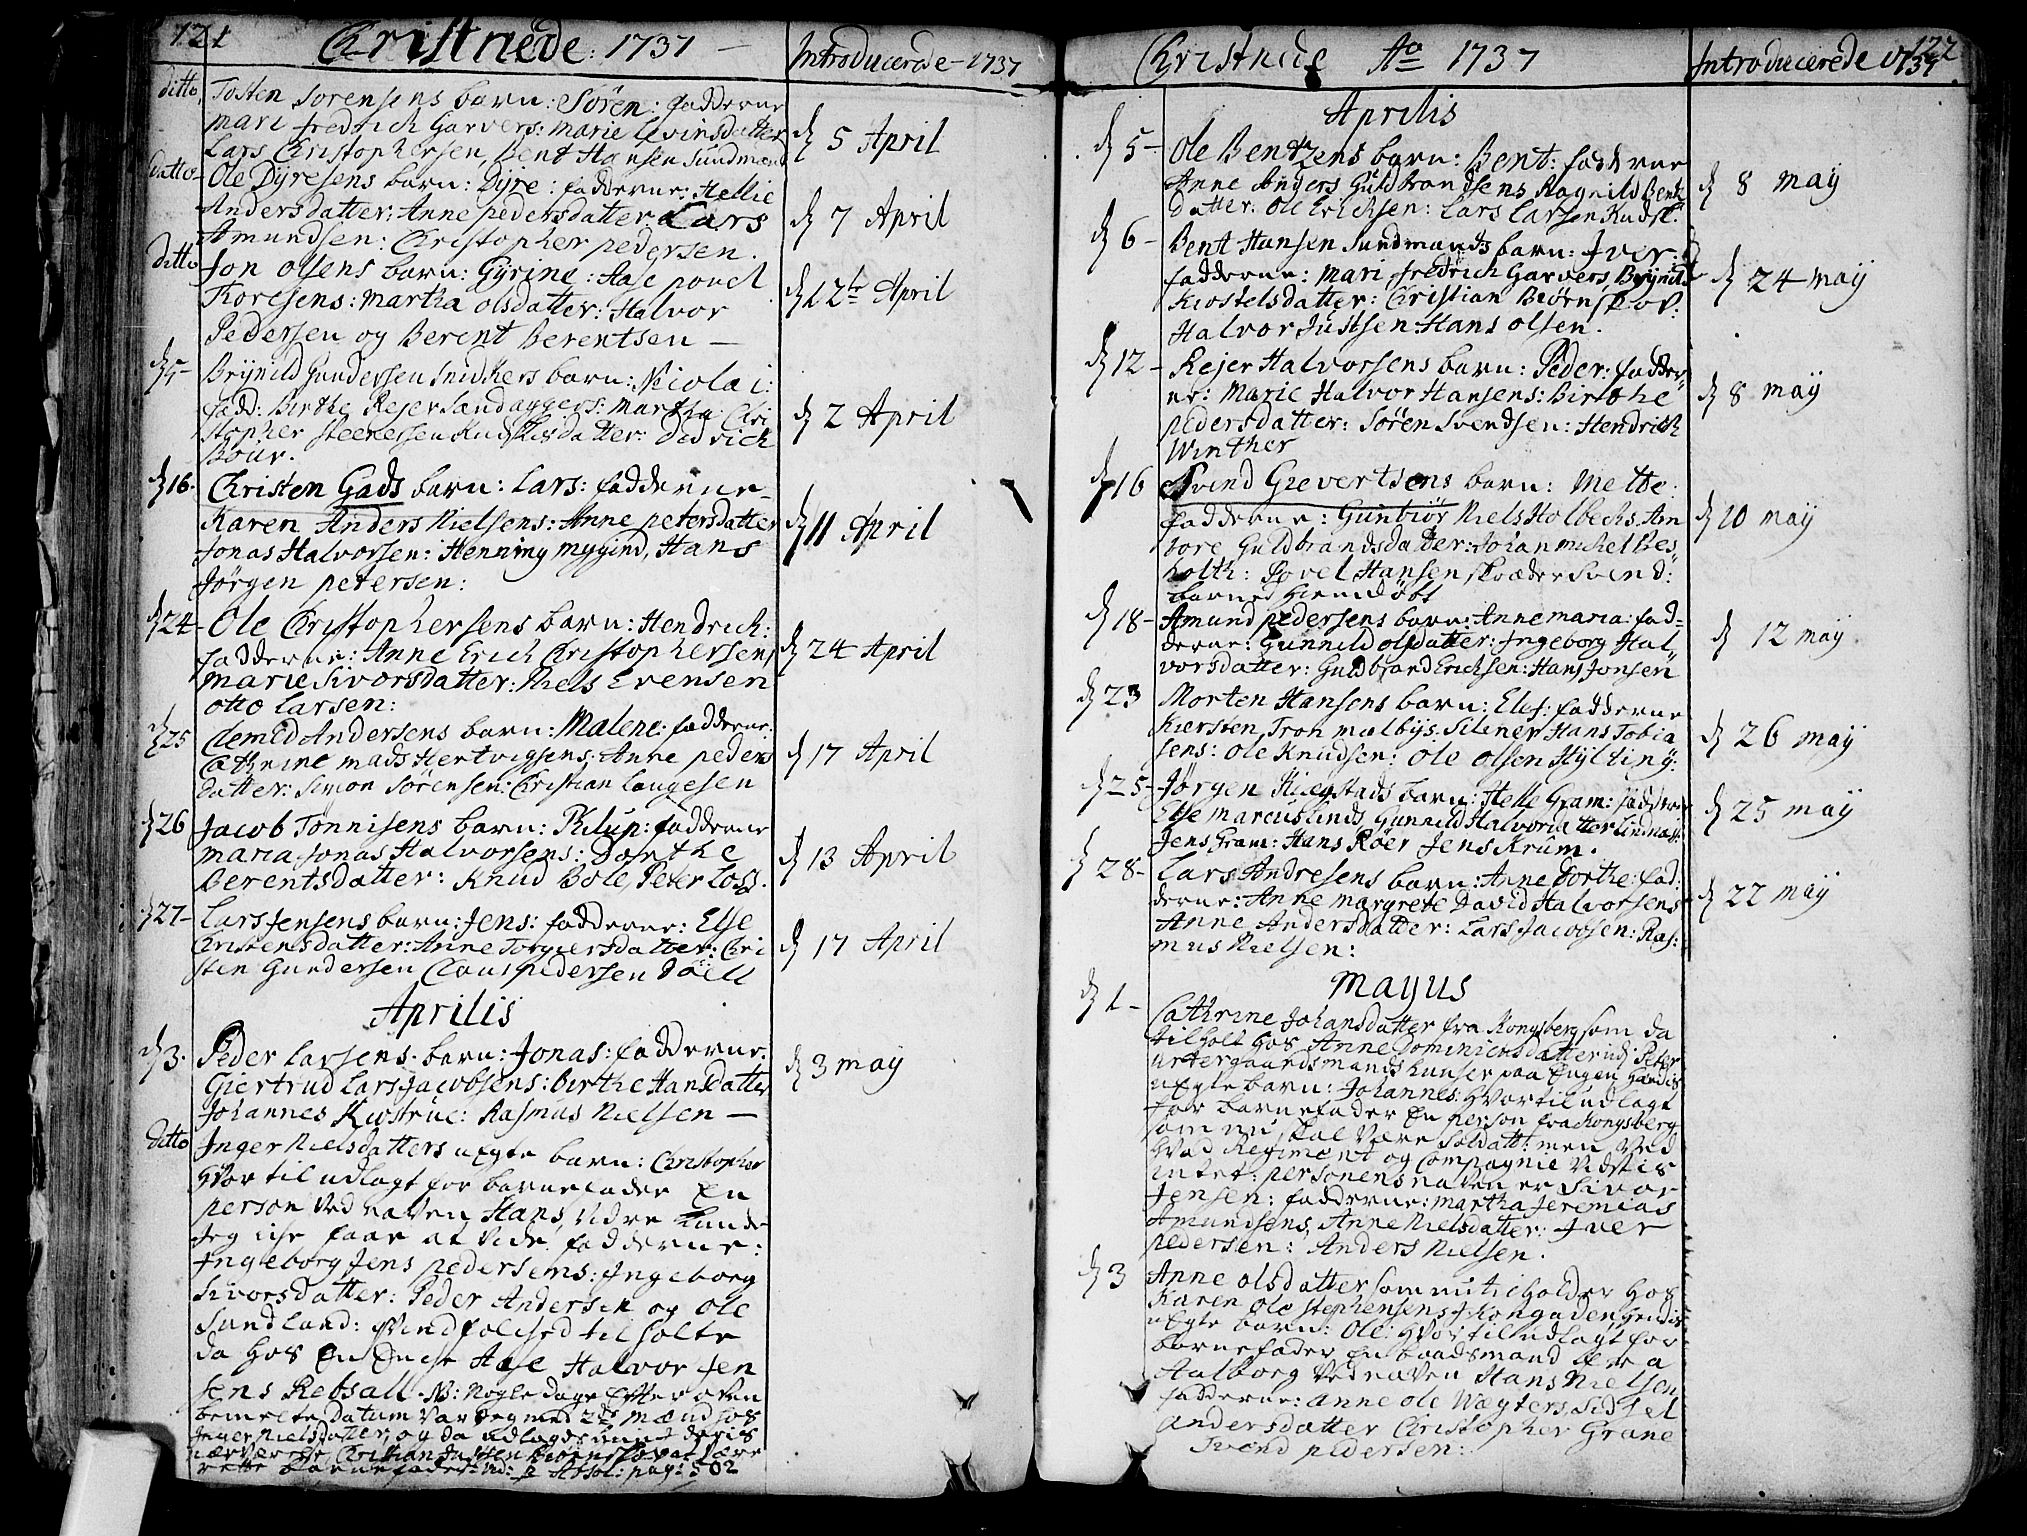 121
Christnede: 1737 —
Introducerede — 1737
ditto
Tosten Sorensens barn: Søren: fadderne
Mari Fredrich Garvers: Marie Levinsdatter
Lars Christophersen, Bent Hansen Sundmand
d 5 April
ditto
Ole Dÿresens barn: Dÿre: fadderne: Hellie
Andersdatter: Anne Pedersdatter Lars
Amundsen: Christopher Pedersen.
d 7 April
ditto
Jon Olsens barn: Gÿrine: Aase Povel
Koresens: Martha Olsdatter: Halvor
Pedersen og Berent Berentsen —
d 12te April
d 5 -
Brÿnild Gundersen Snidkers barn: Nicolai:
fadd: Birthe Rejer Sandaggers: Martha Chri
stopher datter: Didrich
Boür.
d 2 April
d 16.
Christen Gads barn: Lars: fadderne
Karen Anders Nielsens: Anne Petersdatter
Jonas Halvorsen: Henning Mygind, Hans
Jörgen Petersen:
d 11 April
d 24 -
Ole Christophersens barn: Hendrich:
fadderne: Anne Erich Christophersens
Marie Sivorsdatter: Niels Evensen
Otto Larsen:
d 24 April
d 25
Clemed Andersens barn: Malene: fadderne:
Cathrine Mads Hertvigsens: Anne Peders
datter: Simon Sörensen: Christian Laugesen
d 17 April
d 26
Jacob Tönnisens barn: Philup: fadderne
Maria Jonas Halvorsens: Dorthe
Berentsdatter: Knud Bole, Peter Loss.
d 13 April
d 27 -
Lars Jensens barn: Jens: fadderne: Else
Christensdatter: Anne Torgiersdatter: Chri
sten Gundersen Claus Pedersen Döell
d 17 April
Aprilis
d 3.
Peder Larsens barn: Jonas: fadderne.
Giertrud Lars Jacobsens: Birthe Hansdatter
Johannes Kustrue: Rasmus Nielsen —
d 3 may
ditto
Inger Nielsdatters uegte barn: Christopher
hvortil udlagt for barnefader En
person ved naven Hans, vidre kunde
Jeg icke faae at vide. fadderne:
Ingleborg Jens Pedersens: Ingeborg
Sivorsdatter: Peder Andersen og Ole
Sundland: tilholte
da hos En Encke Aase Halvor Jen
Jens Rebsall. NB: Nogle dage Efter oven
bemelte datum var Jeg med 2de Mænd hos
Inger Nielsdatter, og da udlagde hun i deris
nærværelse Christian Justsen Biørnskov at være
rette barnefader: vid: p Absol: pag: 502
122
Christnede Ao 1737
Introducerede 1737
Aprilis
d 5 -
Ole Bentzens barn: Bent: fadderne
Anne Anders Guldbrandsens Ragnild Bent
datter: Ole Ericksen: Lars Larsen Kudsk.
d 8 may
d 6 -
Bent Hansen Sundmands barn: Iver:
fadderne: Mari Fredrich Garvers, Brÿnild
Kiostelsdatter: Christian Biørnskov:
Halvor Justsen: Hans Olsen.
d 24 may
d 12 -
Rejer Halvorsens barn: Peder: fadder¬
ne: Marie Halvor Hansens: Birthe
Pedersdatter: Sören Svendsen: Hendrich
Winther
d 8 may
d 16
Svend Grevertsens barn: Mette:
fadderne: Gunbiør Niels Holbecks, An
bore Guldbrandsdatter: Johan Michel Bes¬
holth: Povel Hansen Skræder Svend:
barned Hiemdöbt
d 10 may
d 18 -
Amund Pedersens barn: Anne Maria: fad=
derne: Gunnild Olsdatter: Ingeborg Hal¬
vorsdatter: Guldbrand Ericksen: Hans Jonsen
d 12 may.
d 23
Morten Hansens barn: Elef: fadderne
Kiersten Tron Malbÿs. Silene Hans Tobia
sens: Ole Knudsen: Ole Olsen Hÿlting:
d 26 may
d 25 -
Jörgen barn: Helle Gram: fadderne
Else Marcus Linds Gunnild Halvorsdatter Lindaas:
Jens Gram: Hans Röer Jens Krüm.
d 25 may
d 28 -
Lars Andresens barn: Anne Dorthe: fad:
derne: Anne Margrete David Halvorsens
Anne Andersdatter: Lars Jacobsen: Ras:
mus Nielsen:
d 22 may
Mayus
d 1 -
Cathrine Johansdatter fra Kongsberg som da
tilholt hos Anne Dominicusdatter udj Peter
paa Engen, hendis
uegte barn: Johannes: hvortil udlagt
for barnefader En person fra Kongsberg
som nu skal være Soldatt: men ved
hvad Regiment og Compagnie vidstis
intet: personens naven er Sivor
Jensen: fadderne: Martha Jeremias
Amundsens, Anne Nielsdatter: Iver
Pedersen: Anders Nielsen.
d 3
Anne Olsdatter som nu tilholder hos
Karen Ole Stephensens i Kongsgaden, hendis
uegte barn: Ole: hvortil udlagt for
barnefader En baadsmand fra
Aalborg ved naven Hans Nielsen
fadderne: Anne Ole Wægters, Sidsel
Andersdatter Christopher Grane
Svend Pedersen: